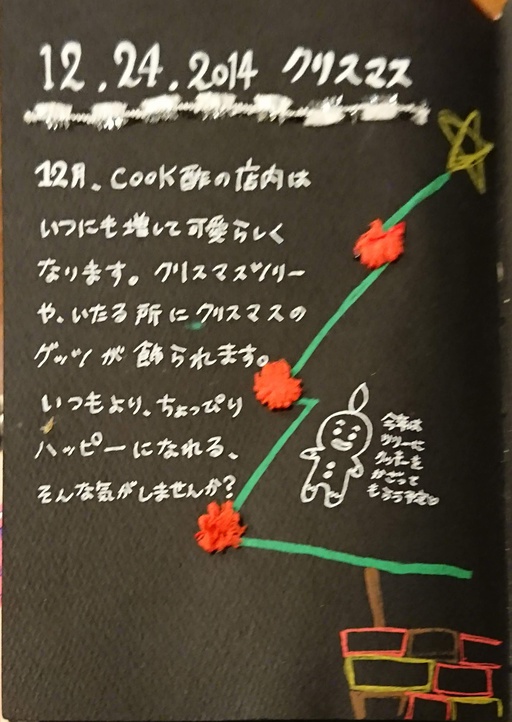 12.24.2014 クリスマス
12月、COOK酢の店内は
いつにも増して可愛らしく
なります。クリスマスツリー
や、いたる所にクリスマスの
グッツが飾られます。
いつもより、ちょっぴり
ハッピーになれる、
そんな気がしませんか?
今年は
ツリーに
クッキーを
かざって
もらう予定